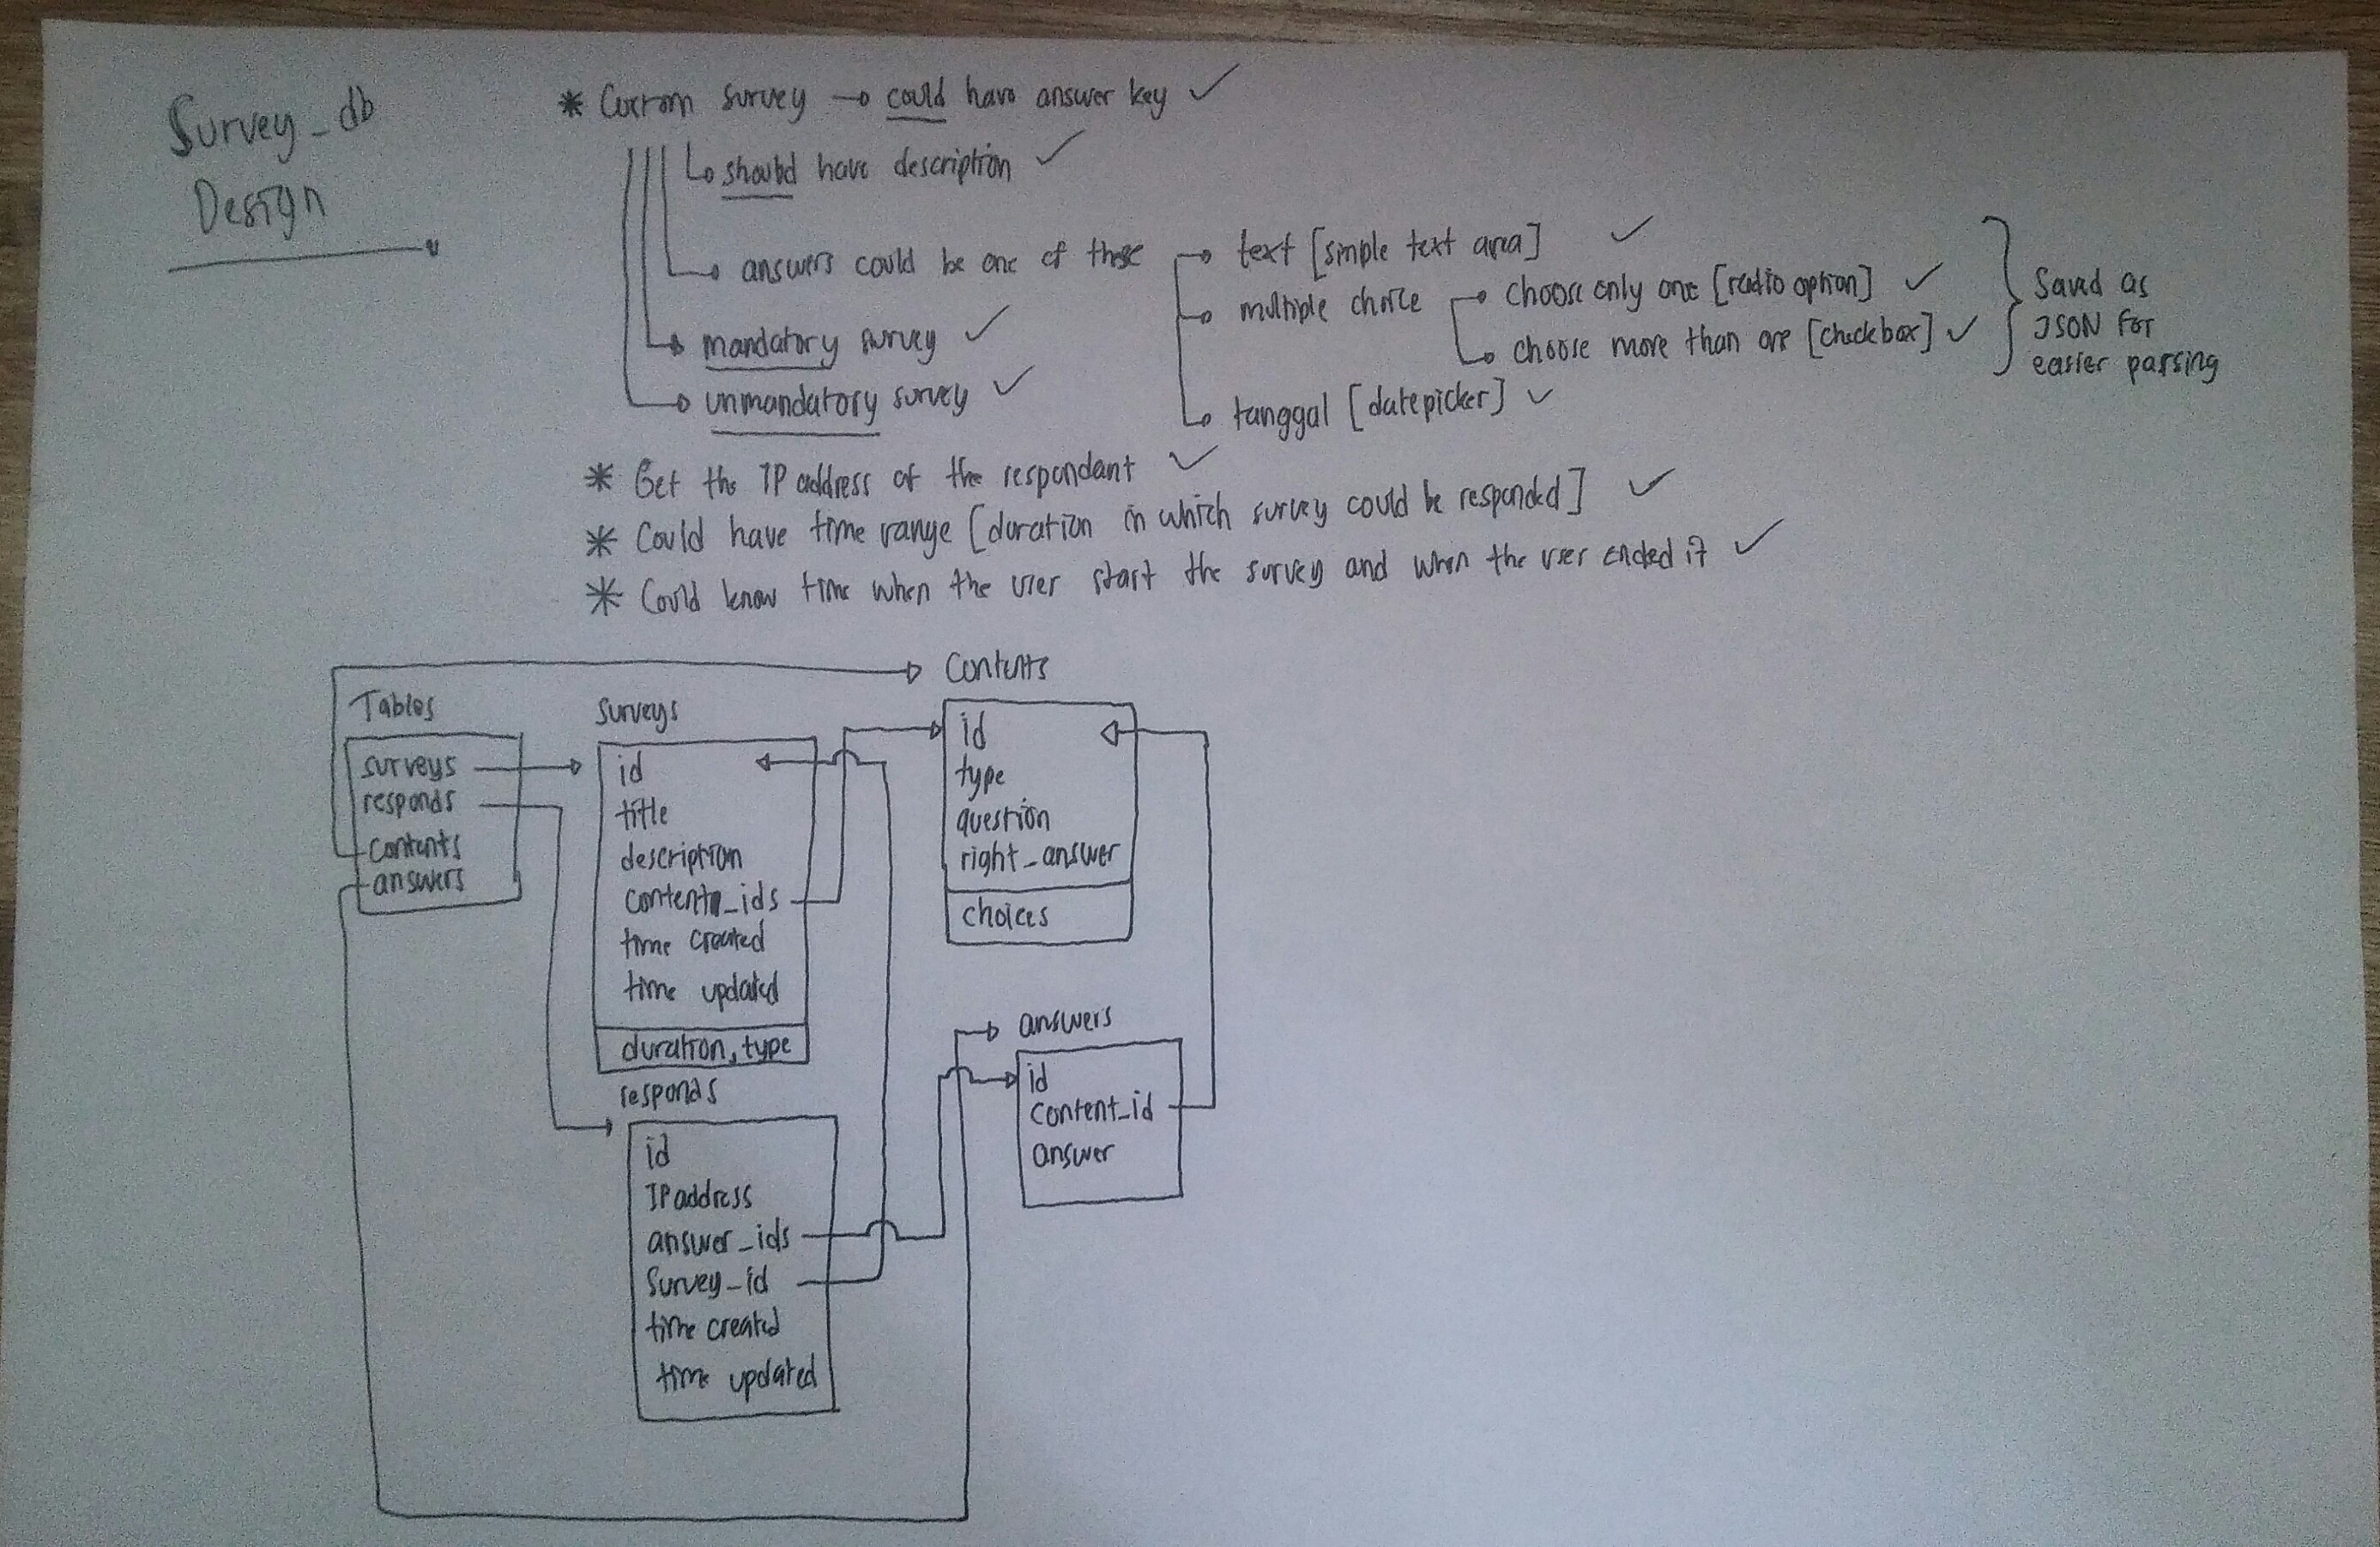 Survey_db
Design
* Custom survey → could have answer key ✓
should have description ✓
answers could be one of these
text [simple text area] ✓
multiple choice
choose only one [radio option] ✓
choose more than one [checkbox] ✓
tanggal [datepicker] ✓
Saved as
JSON for
easier parsing
mandatory survey ✓
unmandatory survey ✓
* Get the IP address of the respondant ✓
* Could have time range [duration in which survey could be responded] ✓
* Could know time when the user start the survey and when the user ended it ✓
Tables
surveys
responds
contents
answers
surveys
id
title
description
content_ids
time created
time updated
duration, type
Contents
id
type
question
right_answer
choices
responds
id
IP address
answer_ids
survey_id
time created
time updated
answers
id
content_id
answer